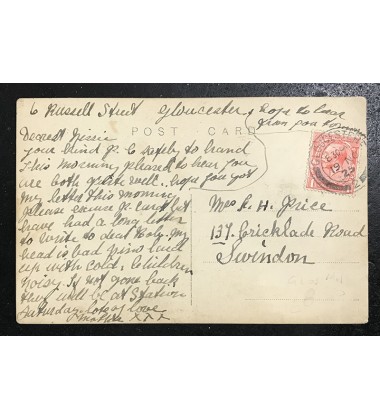 6 Russell Street Gloucester
hope to hear
from you
POST CARD
Dearest
your kind P. C safely to hand
this morning pleased to hear you
are both quite well. hope you got
my letter this morning
please excuse P. card but
have had a long letter
to write to
head is bad
up with cold. Children
noisy. If not gone back
they will be at Station
Saturday. lots of love
Mother X X X
Mrs H. Price
137. Cricklade Road
Swindon